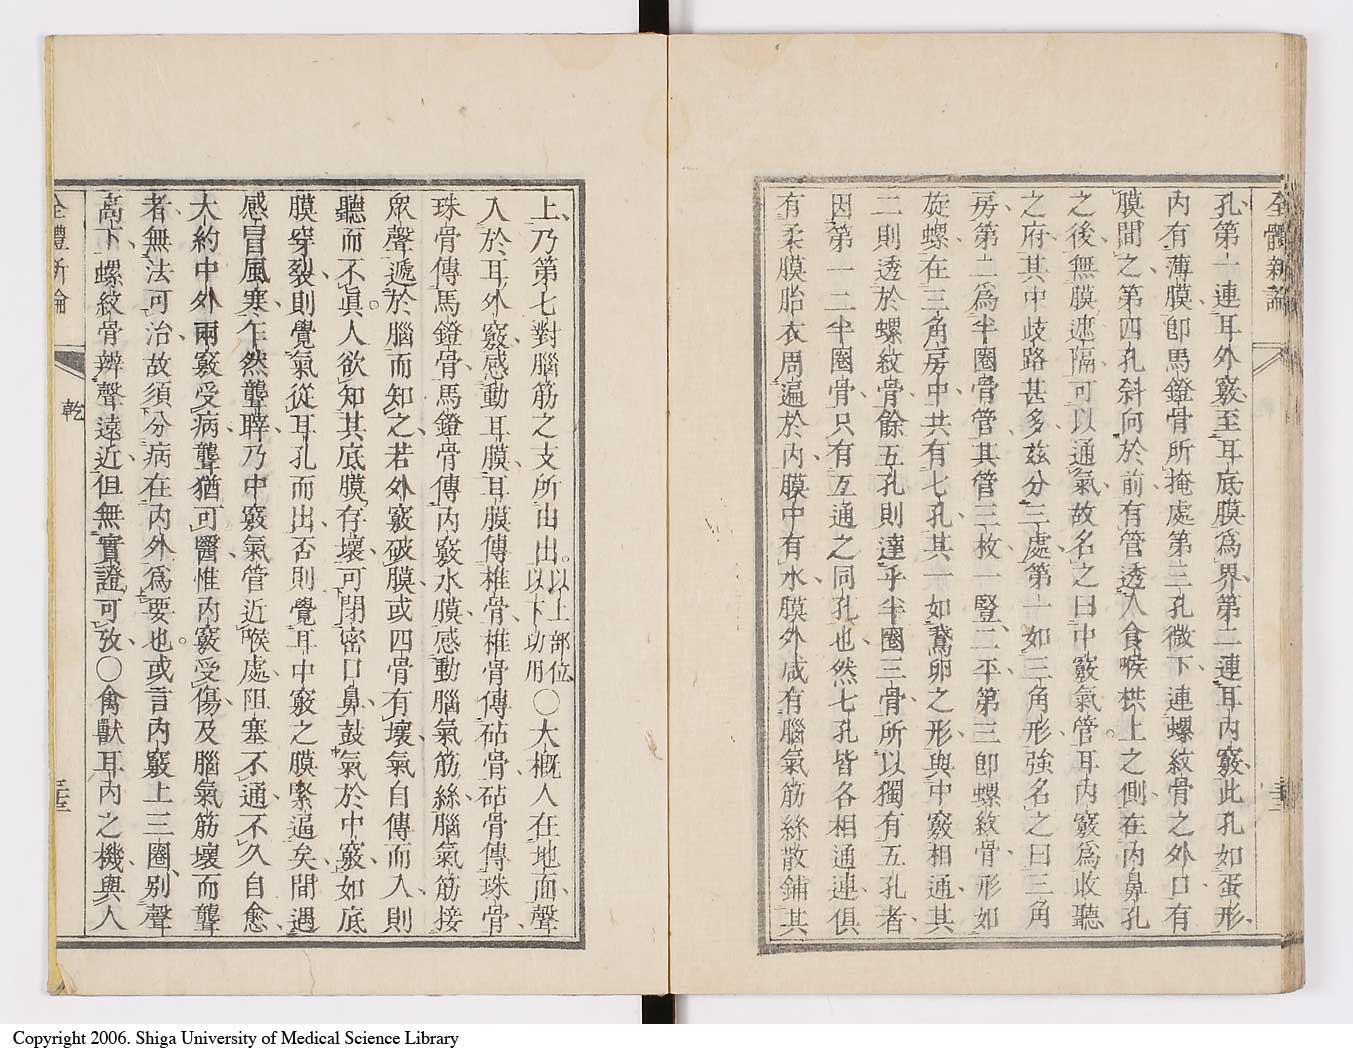 全體新論
三十二
孔、第一連耳外竅、至耳底膜爲界、第二連耳內竅、此孔如蛋形、
內有薄膜、卽馬鐙骨所掩處、第三孔微下、連螺紋骨之外口、有
膜間之、第四孔斜向於前、有管透入食喉栱上之側、在內鼻孔
之後、無膜遮隔、可以通氣、故名之曰中竅氣管。耳內竅爲收聽
之府、其中歧路甚多、玆分三處、第一如三角形、強名之曰三角
房、第二爲半圈骨管、其管三枚、一豎、二平、第三卽螺紋骨、形如
旋螺、在三角房中、共有七孔、其一如鵞卵之形、與中竅相通、其
二則透於螺紋骨、餘五孔則達乎半圈三骨、所以獨有五孔者、
因第一二半圈骨、只有互通之同孔也、然七孔皆各相通連、俱
有柔膜胎衣、周遍於內、膜中有水、膜外咸有腦氣筋絲散鋪其
上、乃第七對腦筋之支所由出。以上部位、以下功用○大槪人在地面、聲
入於耳外竅、感動耳膜、耳膜傳椎骨、椎骨傳砧骨、砧骨傳珠骨、
珠骨傳馬鐙骨、馬鐙骨傳內竅水膜、感動腦氣筋絲、腦氣筋接
衆聲遞於腦而知之、若外竅破膜、或四骨有壞、氣自傳而入、則
聽而不眞。人欲知其底膜存壞、可閉密口鼻、鼓氣於中竅、如底
膜穿裂、則覺氣從耳孔而出、否則覺耳中竅之膜緊逼矣、間遇
感冒風寒、乍然聾聹、乃中竅氣管近喉處、阻塞不通、不久自愈
大約中外兩竅受病、聾猶可醫、惟內竅受傷、及腦氣筋壞而聾
者、無法可治、故須分病在內外爲要也。或言內竅上三圈、別聲
高下、螺紋骨辨聲遠近、但無實證可攷○禽獸耳內之機、與人
全體新論
乾
三十三
Copyright 2006. Shiga University of Medical Science Library